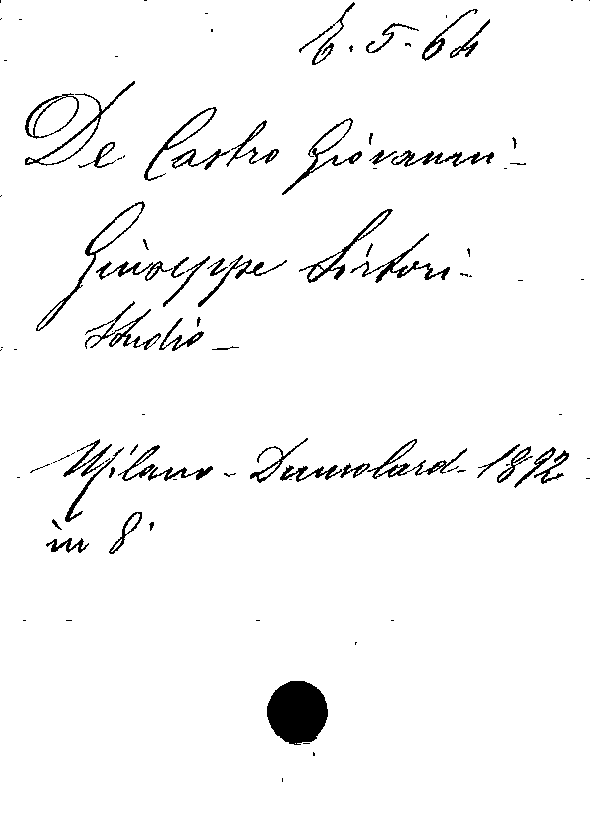 E. 5. 64
De Castro Giovanni -
Giuseppe Sirtori -
Studio -
Milano - Dumolard - 1892
in 8°